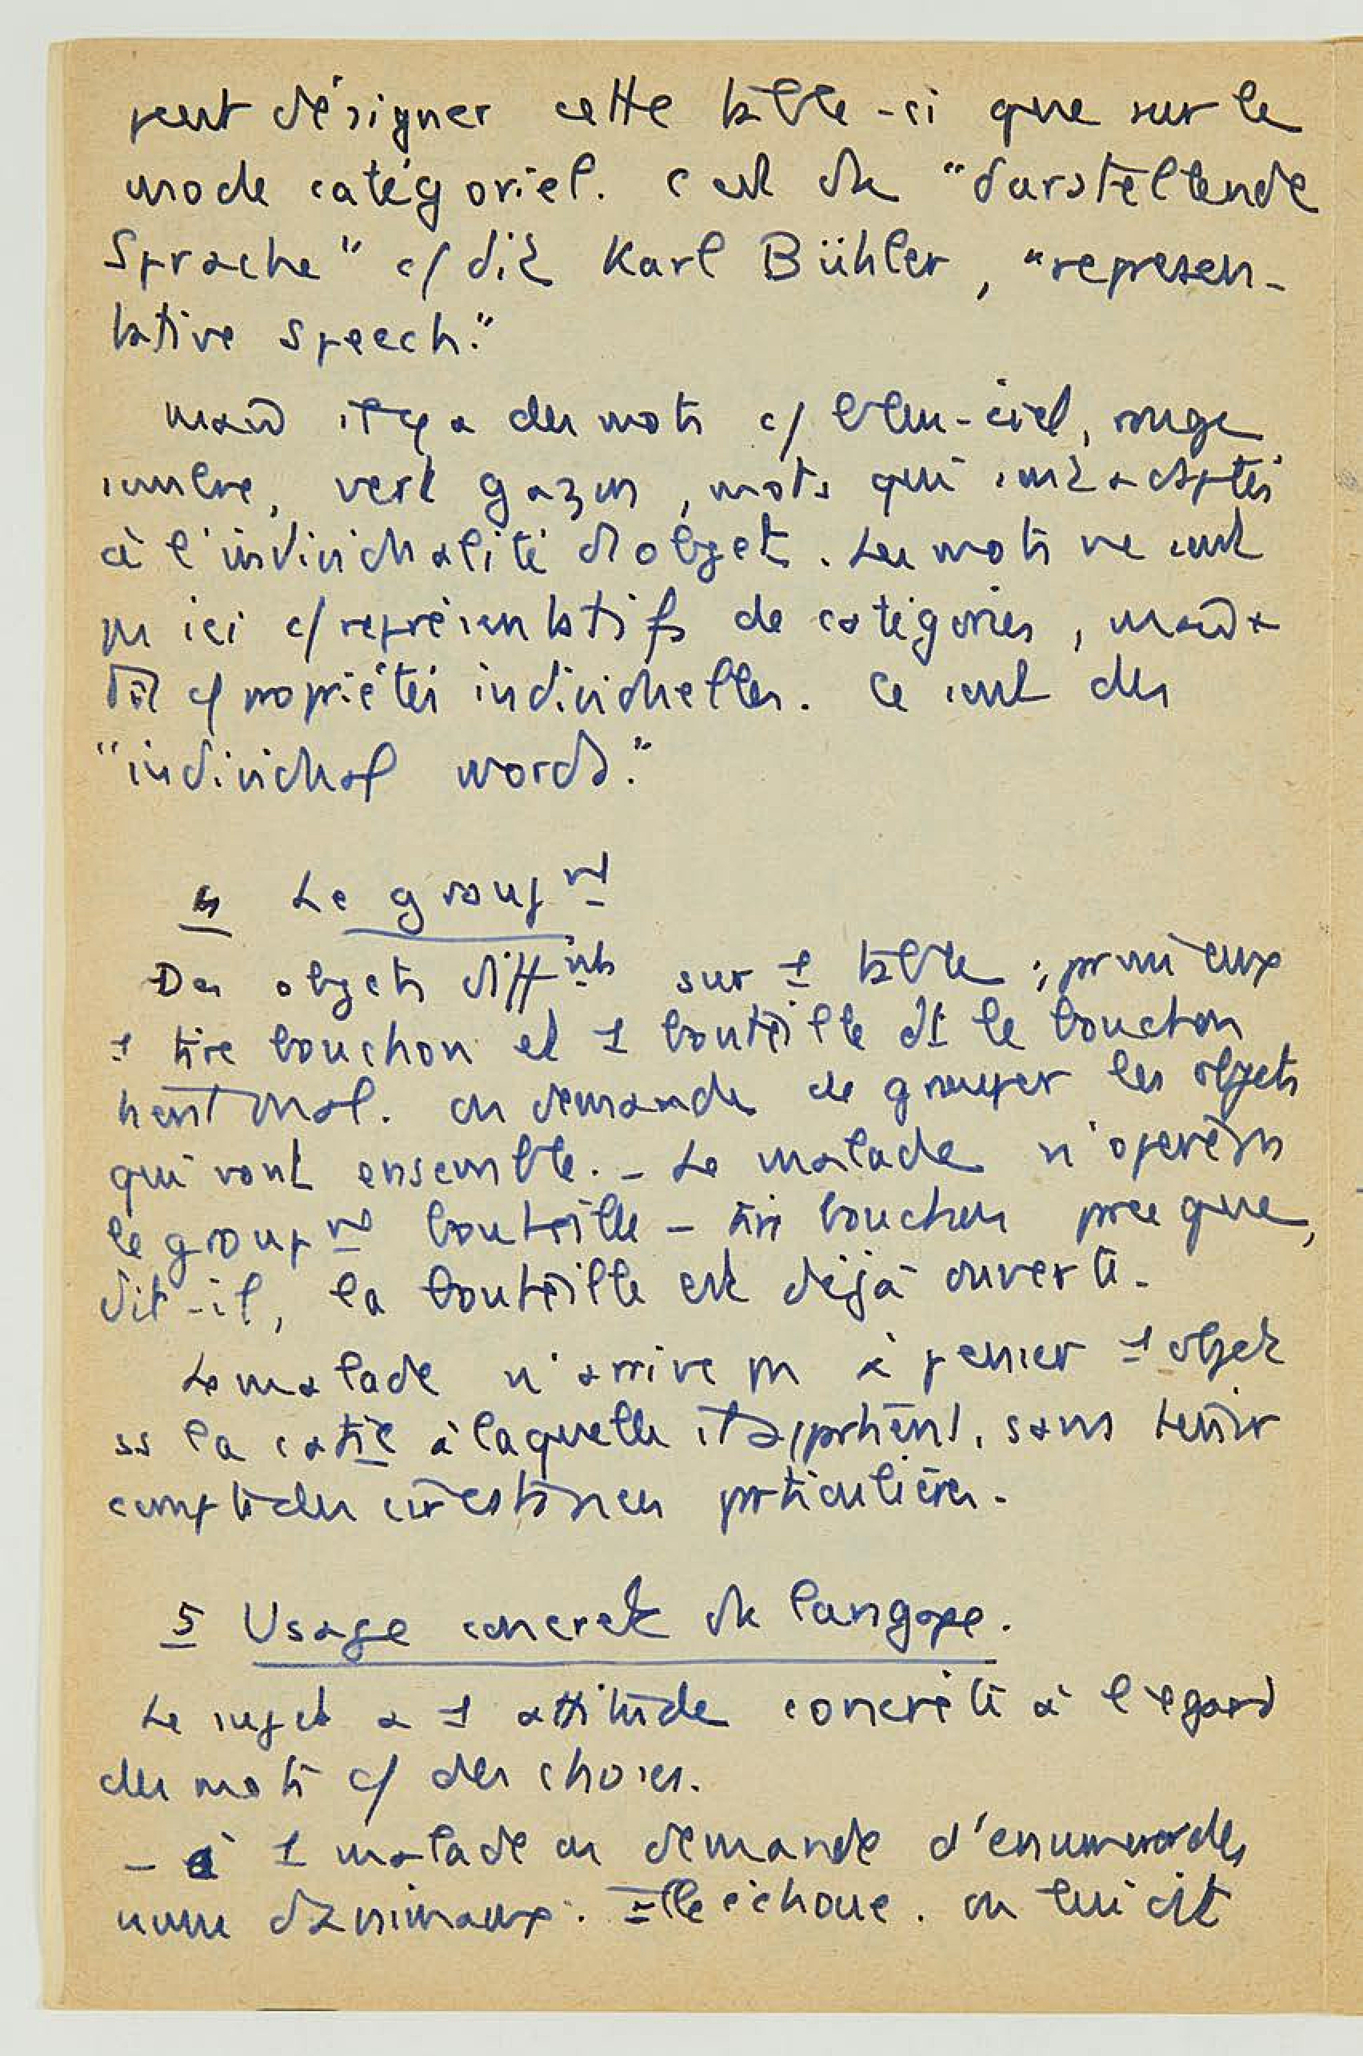 peut désigner cette table-ci que sur le
mode catégoriel. C'est de "darstellende
Sprache" c/ dit Karl Bühler, "represen-
tative speech."
Mais il y a des mots c/ bleu-ciel, rouge
sombre, vert gazon, mots qui sont adaptés
à l'individualité d'objets. Les mots ne sont
pas ici c/ représentatifs de catégories, mais
c/ propriétés individuelles. Ce sont des
"individual words."
4 Le groupnt
Des objets diffnts sur 1 table ; parmi eux
1 tire bouchon et 1 bouteille dt le bouchon
tient mal. On demande de grouper les objets
qui vont ensemble. - Le malade n'opère pas
le groupnt bouteille - tire bouchon parce que,
dit-il, la bouteille est déjà ouverte.
Le malade n'arrive pas à penser 1 objet
ss la catie à laquelle il appartient, sans tenir
compte des circonstances particulières.
5 Usage concret du langage.
Le sujet a 1 attitude concrète à l'égard
des mots c/ des choses.
- à 1 malade on demande d'enumerer des
noms d'animaux. Elle échoue. On lui dit